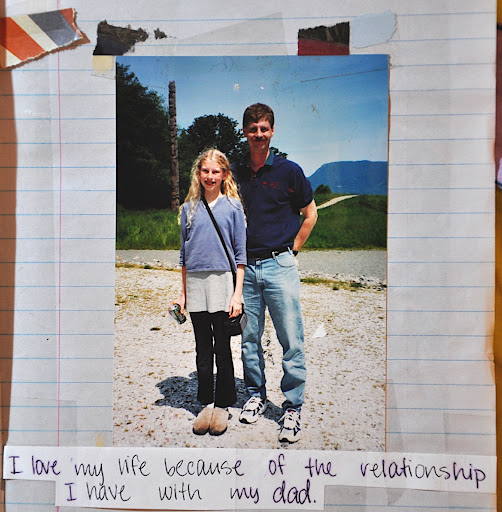 I love my life because of the relationship
I have with my dad.